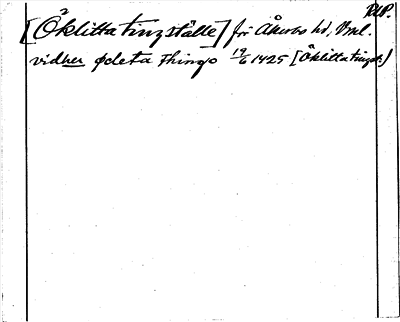 RLP.
[Öklitta tingställe] för Åkerbo hd, Vml.
vidher ødeta Thingo 19/6 1425 [Öklitta tingst.]